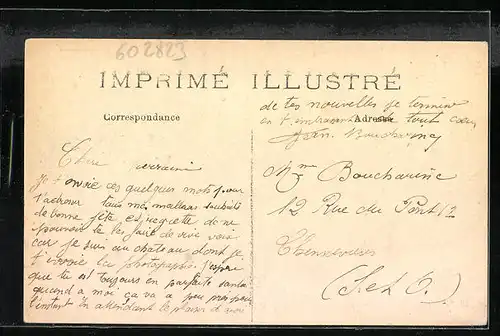 602823
IMPRIMÉ ILLUSTRÉ
Correspondance
Chère
Je t'envoie ces quelques mots pour
t'adresser tous mes meilleurs souhaits
de bonne fête et regrette de ne
pouvoir te les faire de vive voix
car je suis au chateau dont je
t'envoie la photographie. J'espère
que tu est toujours en parfaite santé
quand a moi ça va a peu près pour
l'instant En attendant le plaisir d'avoir
de tes nouvelles je termine
en t'embrassant de tout coeur
Adresse
Jean
Mme Boucharine
12 Rue du Pont 12
Chennevières
(S et O.)